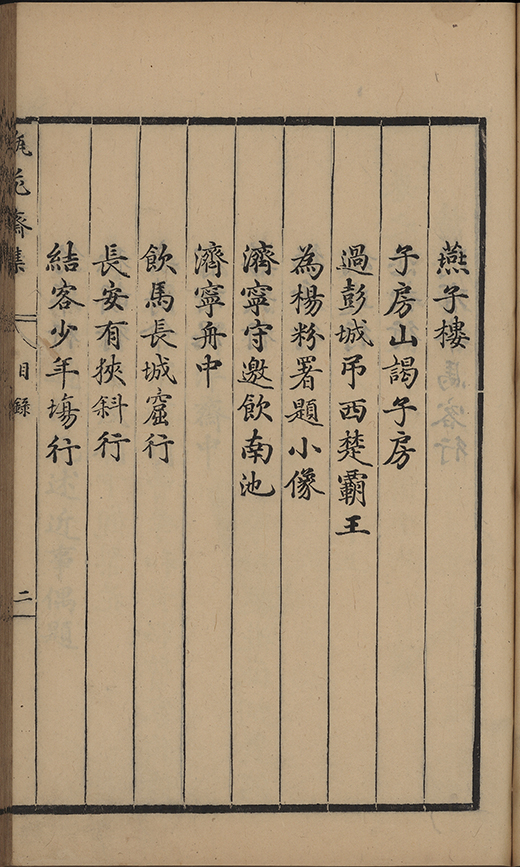 燕子樓
子房山謁子房
過彭城吊西楚霸王
為楊粉署題小像
濟寧守邀飲南池
濟寧舟中
飲馬長城窟行
長安有狹斜行
結客少年塲行
瓶花齋集
目錄
二